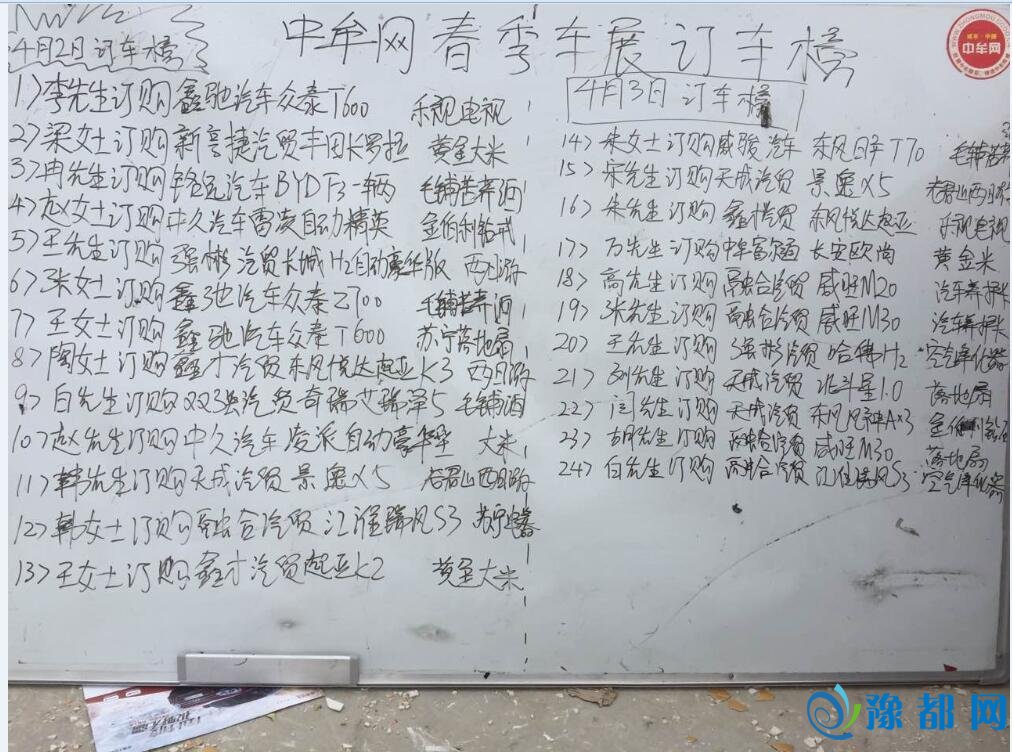 中牟网春季车展订车榜
中车网
4月2日订车榜
1)李先生订购鑫驰汽车众泰T600 乐视电视
2)梁女士订购新亨捷汽贸丰田卡罗拉 黄金大米
3)冉先生订购 汽车BYDF3一辆 毛铺苦荞酒
4)赵女士订购中久汽车雷凌自动精英 金伯利钻戒
5)王先生订购强彬汽贸长城H2自动豪华版 两日游
6)张女士订购鑫驰汽车众泰Z700 毛铺苦荞酒
7)王女士订购鑫驰汽车众泰T600 苏宁落地扇
8)陶女士订购鑫才汽贸东风悦达起亚K3 两日游
9)白先生订购双强汽贸奇瑞艾瑞泽5 毛铺酒
10)赵先生订购中久汽车凌派自动豪华型 大米
11)韩先生订购天成汽贸景逸X5 老君山两日游
12)韩女士订购融合汽贸江淮瑞风S3 苏宁电器
13)王女士订购鑫才汽贸起亚K2 黄金大米
4月3日订车榜
14)朱女士订购威骏汽车 东风日产T70 毛铺苦荞
15)宋先生订购天成汽贸 景逸X5 老君山两日游
16)朱先生订购鑫 汽贸 东风悦达起亚 乐视电视
17)万先生订购中牟富通 长安欧尚 黄金米
18)高先生订购融合汽贸 威旺M20 汽车养护
19)张先生订购融合汽贸 威旺M30 汽车养护
20)王先生订购强彬汽贸 哈佛H2 空气净化器
21)刘先生订购天成汽贸 北斗星1.0 落地扇
22)闫先生订购天成汽贸 东风风神AX3 金伯利钻石
23)胡先生订购融合汽贸 威旺M30 落地扇
24)白先生订购融合汽贸 江淮瑞风S3 空气净化器
豫都网